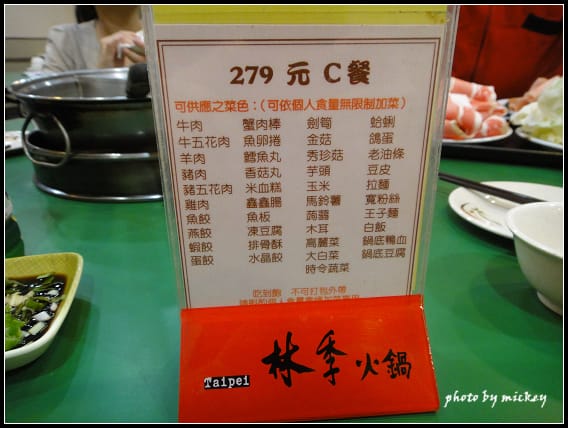 279 元 C餐
可供應之菜色：(可依個人食量無限制加菜)
牛肉 蟹肉棒 劍筍 蛤蜊
牛五花肉 魚卵捲 金菇 鴿蛋
羊肉 鱈魚丸 秀珍菇 老油條
豬肉 香菇丸 芋頭 豆皮
豬五花肉 米血糕 玉米 拉麵
雞肉 鑫鑫腸 馬鈴薯 寬粉絲
魚餃 魚板 蒟蒻 王子麵
燕餃 凍豆腐 木耳 白飯
蝦餃 排骨酥 高麗菜 鍋底鴨血
蛋餃 水晶餃 大白菜 鍋底豆腐
時令蔬菜
吃到飽 不可打包外帶
Taipei 林季火鍋
photo by mickey